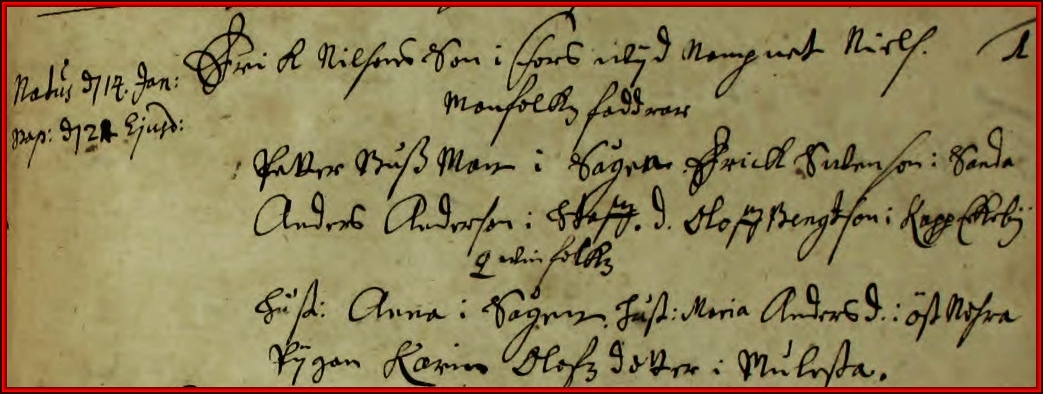 Natus d 14. Jan:
Bap: d 21 Ejusd:
1
Erik Nilsons Son i Fors wijd Nampnet Niels.
Manfolkz faddrar
Petter Bussman i Sågen Erick Swenson i Sanda
Anders Anderson i d. Oloff Bengtson i Kapp Ekeby
Qwinfolkz
Hust: Anna i Sågen, Hust: Maria Anders d. i öst Nohra
Pijgan Karin Olofz dotter i Mulesta.